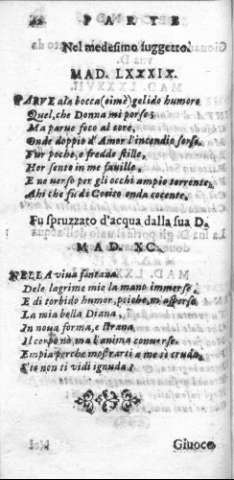 PARTE
Nel medesimo suggetto.
MAD. LXXXIX.
PARVE ala bocca (oimè) gelido humore
Quel, che Donna mi porse;
Ma parue foco al core,
Onde doppio d'Amor l'incendio sorse.
Fur poche, e fredde stille,
Hor sento in me fauille
E no verso per gli occhi ampio torrente,
Ahi che fù di Cocito onda cocente.
Fu spruzzato d'acqua dalla sua D.
MAD. XC.
NELLA viua fontana
Dele lagrime mie la mano immerse,
E di torbido humor, m'asperse
La mia bella Diana,
In noua forma, e strana
Il corpo nò, ma l'anima conuerse.
Empia perche mostrarti a me sì cruda,
S'io non ti vidi ignuda?
Giuoco